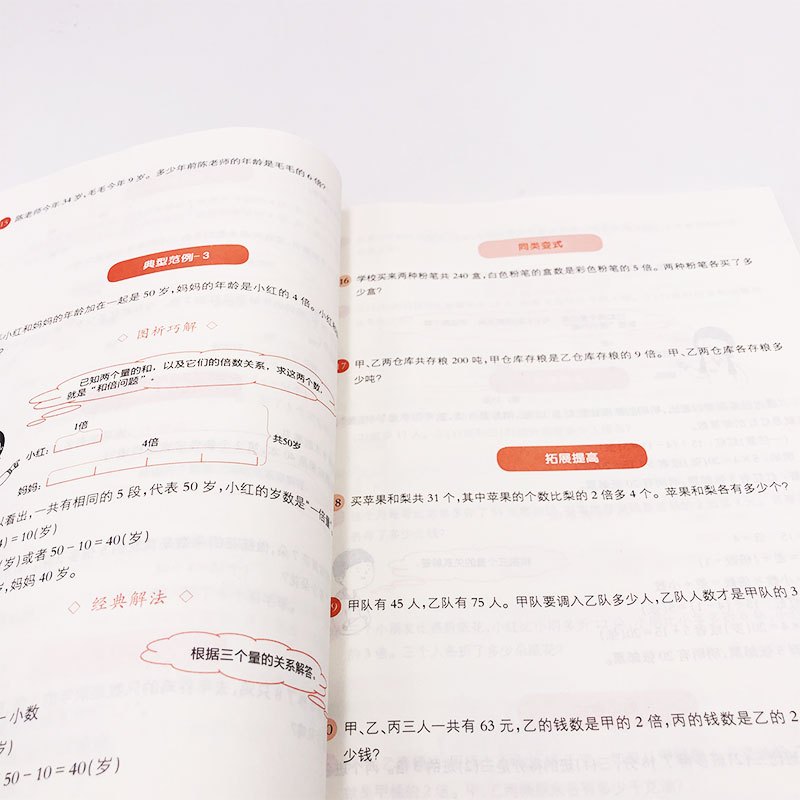 15 陈老师今年34岁,毛毛今年9岁。多少年前陈老师的年龄是毛毛的6倍?
典型范例-3
小红和妈妈的年龄加在一起是50岁,妈妈的年龄是小红的4倍。小红
图析巧解
已知两个量的和,以及它们的倍数关系,求这两个数,
就是“和倍问题”。
1倍
小红:
4倍
共50岁
妈妈:
看出,一共有相同的5段,代表50岁,小红的岁数是“一倍量
4)=10(岁)
(岁)或者50-10=40(岁)
岁,妈妈40岁。
经典解法
根据三个量的关系解答。
小数
岁)
50-10=40(岁)
同类变式
16 学校买来两种粉笔共240盒,白色粉笔的盒数是彩色粉笔的5倍。两种粉笔各买了多
少盒?
7 甲、乙两仓库共存粮200吨,甲仓库存粮是乙仓库存粮的9倍。甲、乙两仓库各存粮多
少吨?
拓展提高
8 买苹果和梨共31个,其中苹果的个数比梨的2倍多4个。苹果和梨各有多少个?
9 甲队有45人,乙队有75人。甲队要调入乙队多少人,乙队人数才是甲队的3
0 甲、乙、丙三人一共有63元,乙的钱数是甲的2倍,丙的钱数是乙的2
少钱?